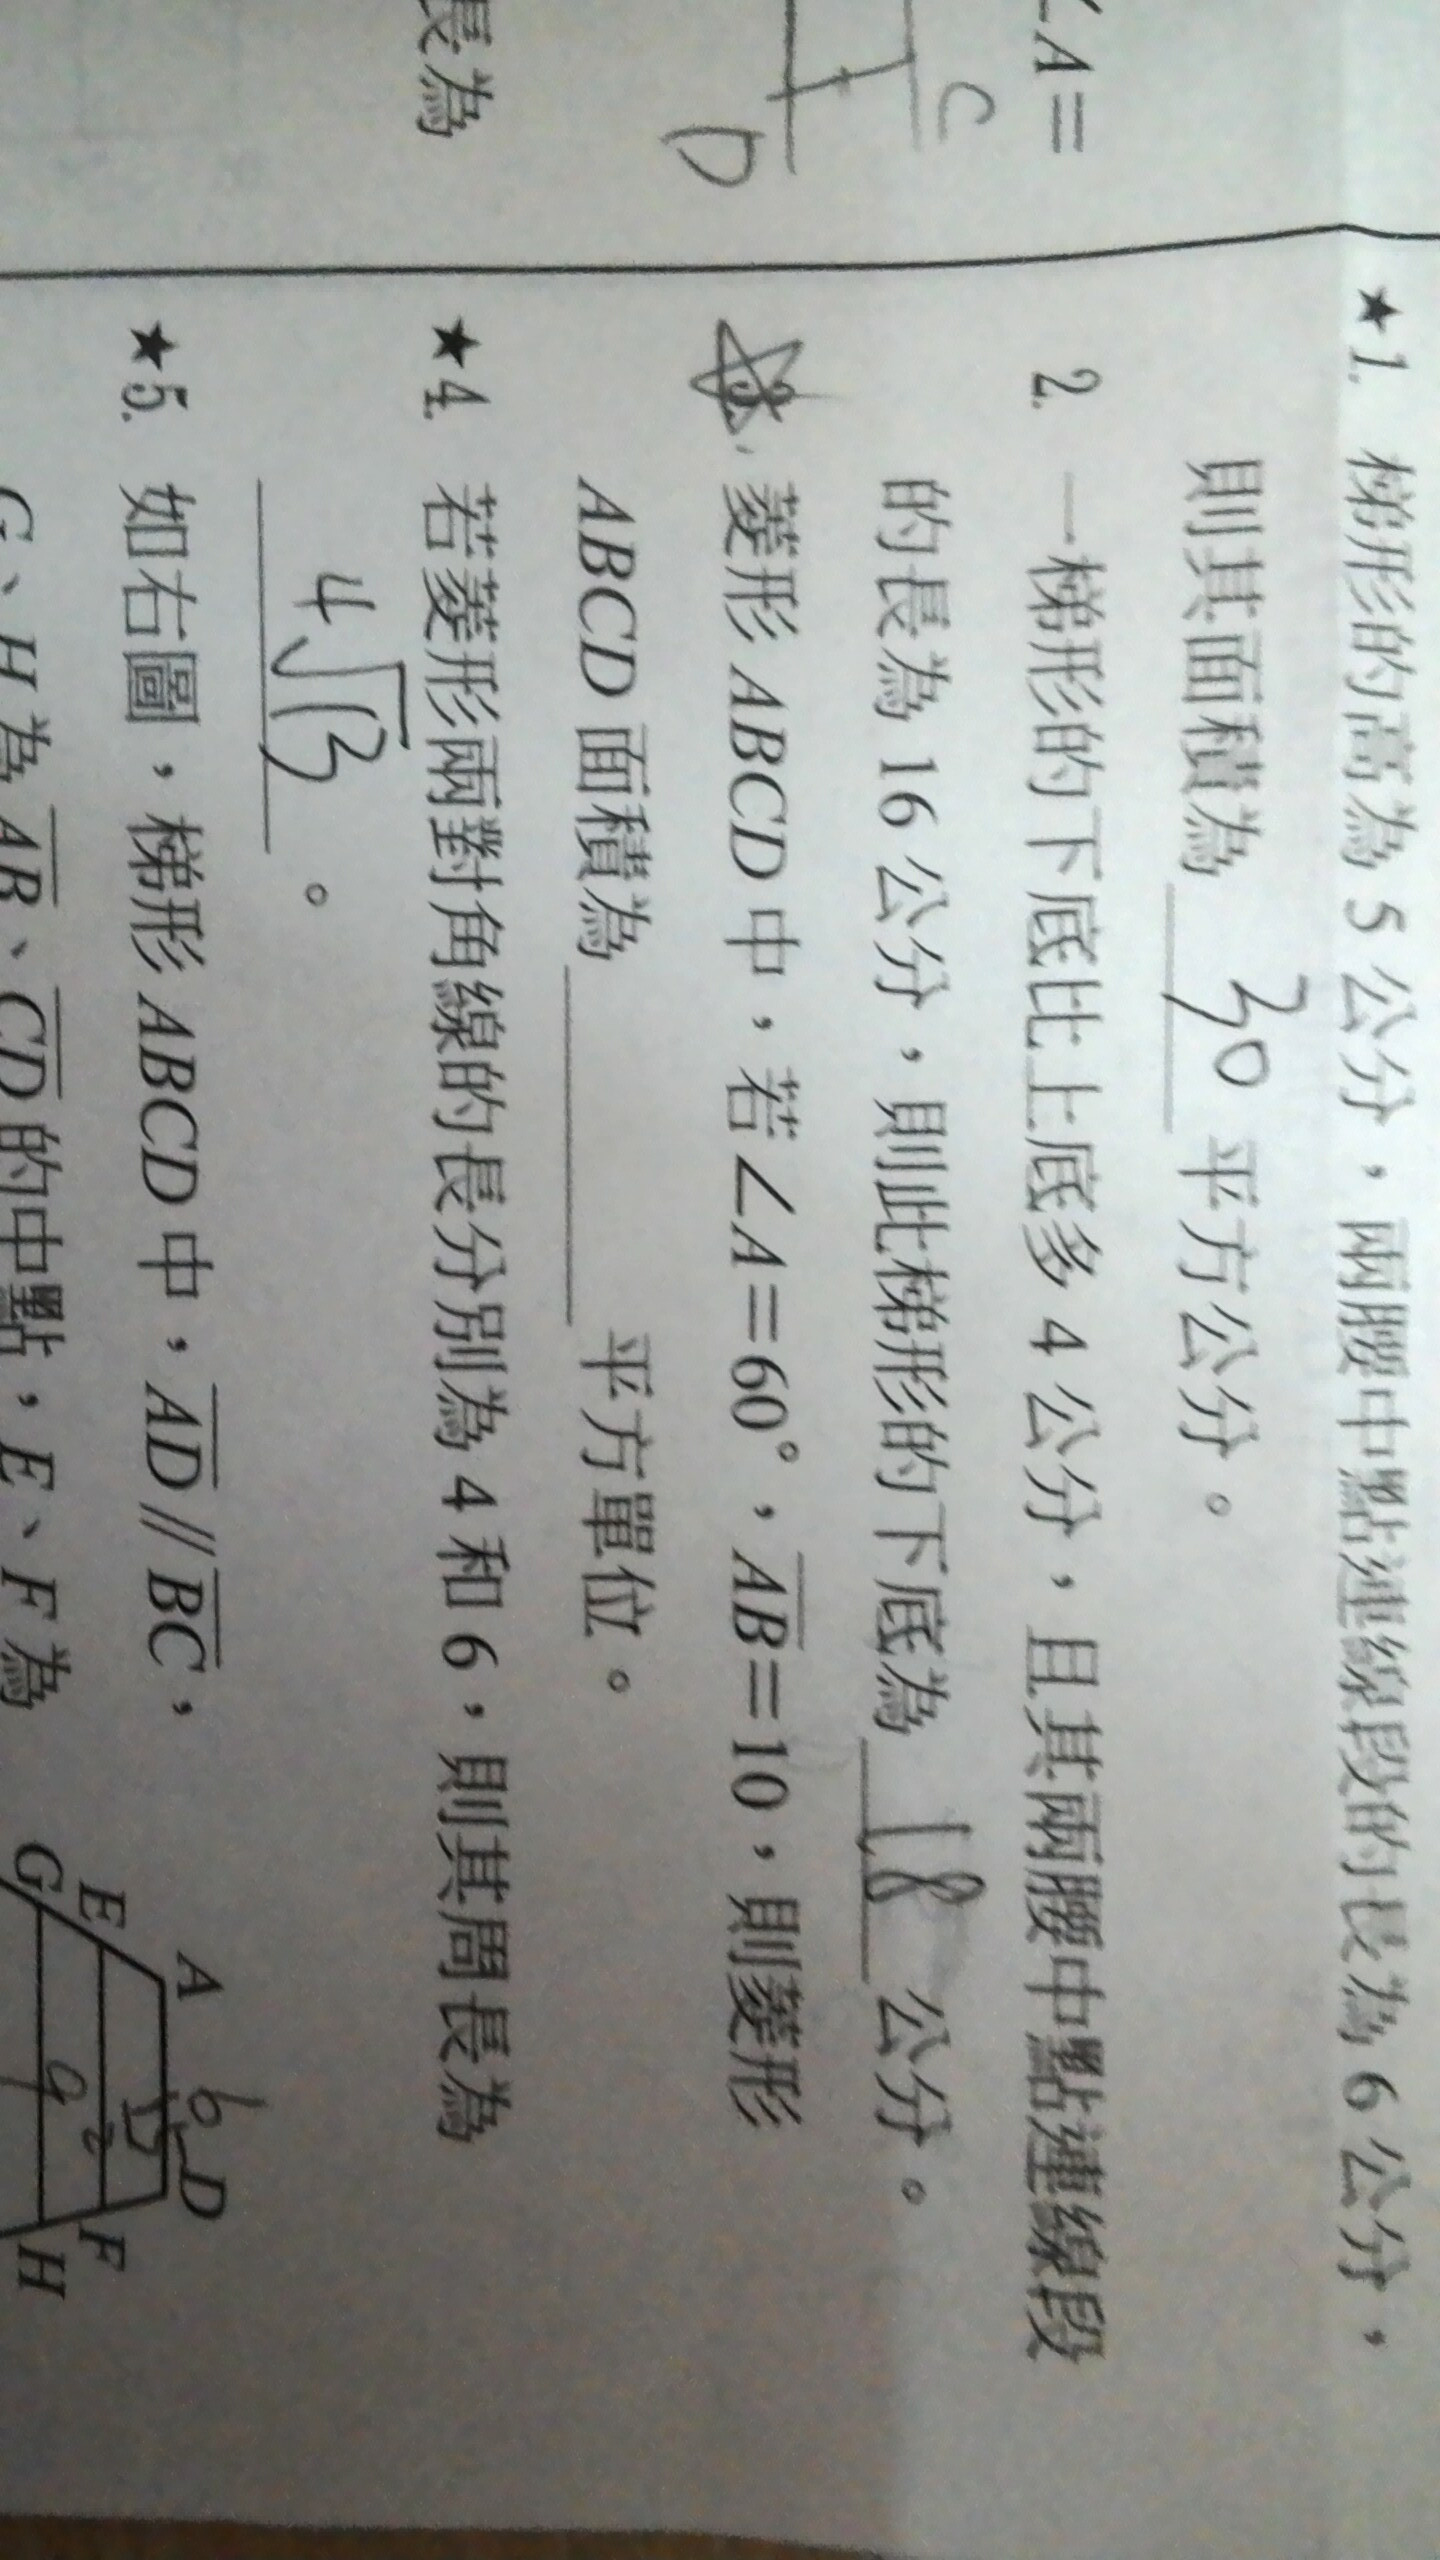 ∠A=
C
D
長為
★1. 梯形的高為 5 公分，兩腰中點連線段的長為 6 公分，
則其面積為 30 平方公分。
2. 一梯形的下底比上底多 4 公分，且其兩腰中點連線段
的長為 16 公分，則此梯形的下底為 18 公分。
3. 菱形 ABCD 中，若∠A=60°，AB=10，則菱形
ABCD 面積為 平方單位。
★4. 若菱形兩對角線的長分別為 4 和 6，則其周長為
4√13 。
★5. 如右圖，梯形 ABCD 中，AD // BC，
G、H 為 AB、CD 的中點，E、F 為
A 6 D
E F
G 9 H